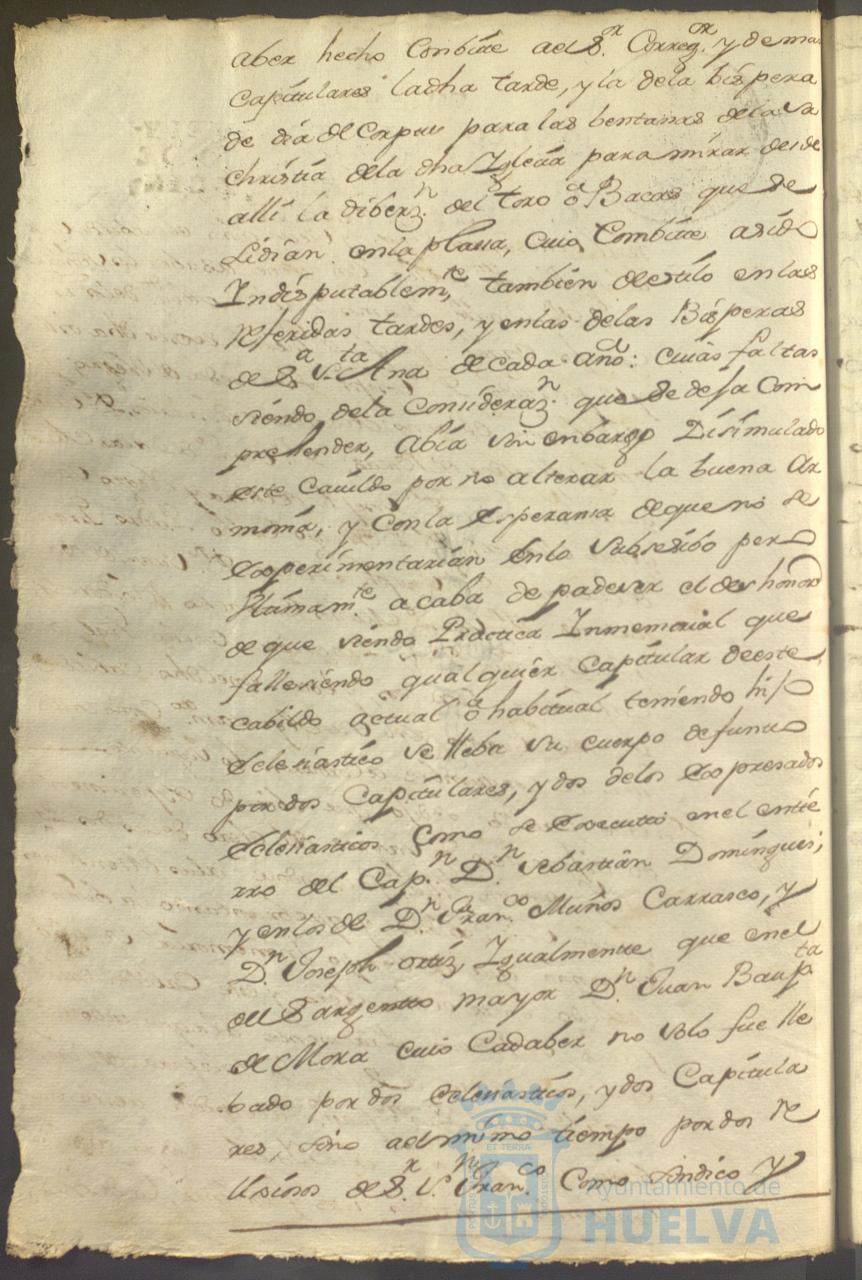 aber hecho Combite ael S.r Correg.or y dema
Capitulares la dha tarde, y la dela bispera
de dia de Corpus para las bentanas dela Sa
christia dela dha Iglecia para mirar desde
alli la diberz.n del toro o Bacas que se
Lidian en la plassa, cuio Combite a sido
Indisputablem.te tambien de estilo en las
referidas tardes, y en las delas Bisperas
de S.a S.ta Ana de cada año: cuias faltas
siendo dela Consideraz.n que se defa Com
prehender, abia sin embargo Disimulado
este Cavildo por no alterar la buena Ar
monia, y con la esperansa de que no se
experimentarian en lo Subsesibo pero
Ultimam.te acaba de padeser el deshonor
de que siendo Practica Inmemorial que
fallesiendo qualquier Capitular de este
cabildo actual o habitual teniendo hijo
Eclesiastico se lleba su cuerpo defunto
por dos Capitulares, y dos delos expresados
Eclesiasticos como se executo en el entie
rro del Cap.n D.n Sebastian Domingues;
y en los de D.n Fran.co Muños Carrasco, y
D.n Joseph Ortiz, Igualmente que en el
del Sargento mayor D.n Juan Baup.ta
de Mora cuio Cadaber no solo fue lle
bado por dos Eclesiasticos, y dos Capitula
res, sino ael mismo tiempo por dos Re
lijiosos de S.r S.n Fran.co Como sindico y
Ayuntamiento de
HUELVA